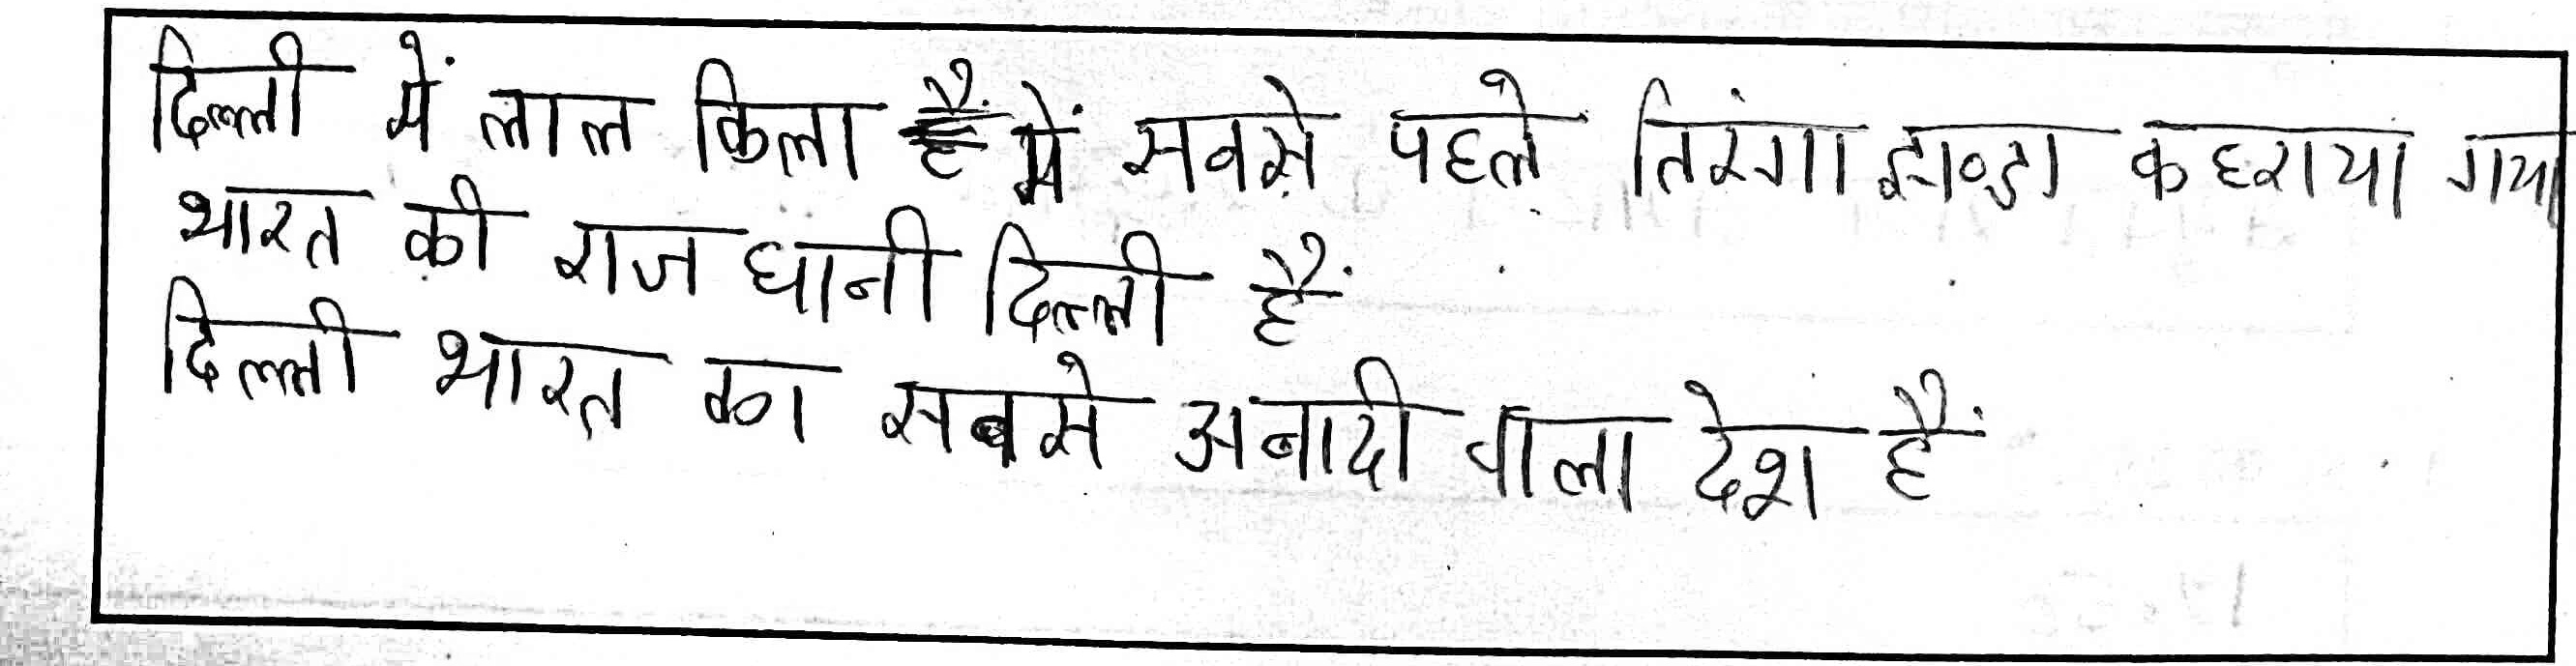 दिल्ली में लाल किला में सबसे पहले तिरंगा झण्डा कहराया गया
भारत की राज धानी दिल्ली हैं
दिल्ली भारत का सबसे अबादी वाला देश हैं